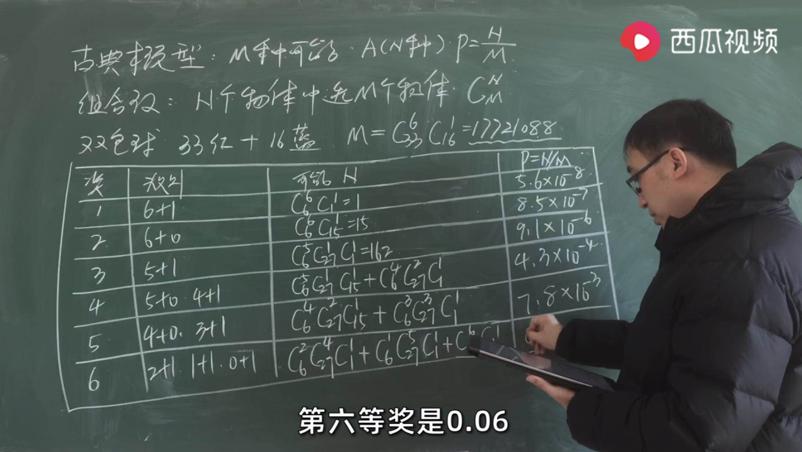 西瓜视频
古典概型：M种可能．A(N种) P=N/M
组合数：N个物体中选M个物体．C_M^N
双色球 33红+16蓝 M=C_33^6 C_16^1=17721088
奖 可能N P=N/M
1 6+1 C_6^6 C_1^1=1 5.6×10^-8
2 6+0 C_6^6 C_15^1=15 8.5×10^-7
3 5+1 C_6^5 C_27^1 C_1^1=162 9.1×10^-6
4 5+0．4+1 C_6^5 C_27^1 C_15^1+C_6^4 C_27^2 C_1^1 4.3×10^-4
5 4+0．3+1 C_6^4 C_27^2 C_15^1+C_6^3 C_27^3 C_1^1 7.8×10^-3
6 2+1．1+1．0+1 C_6^2 C_27^4 C_1^1+C_6^1 C_27^5 C_1^1+C
第六等奖是0.06